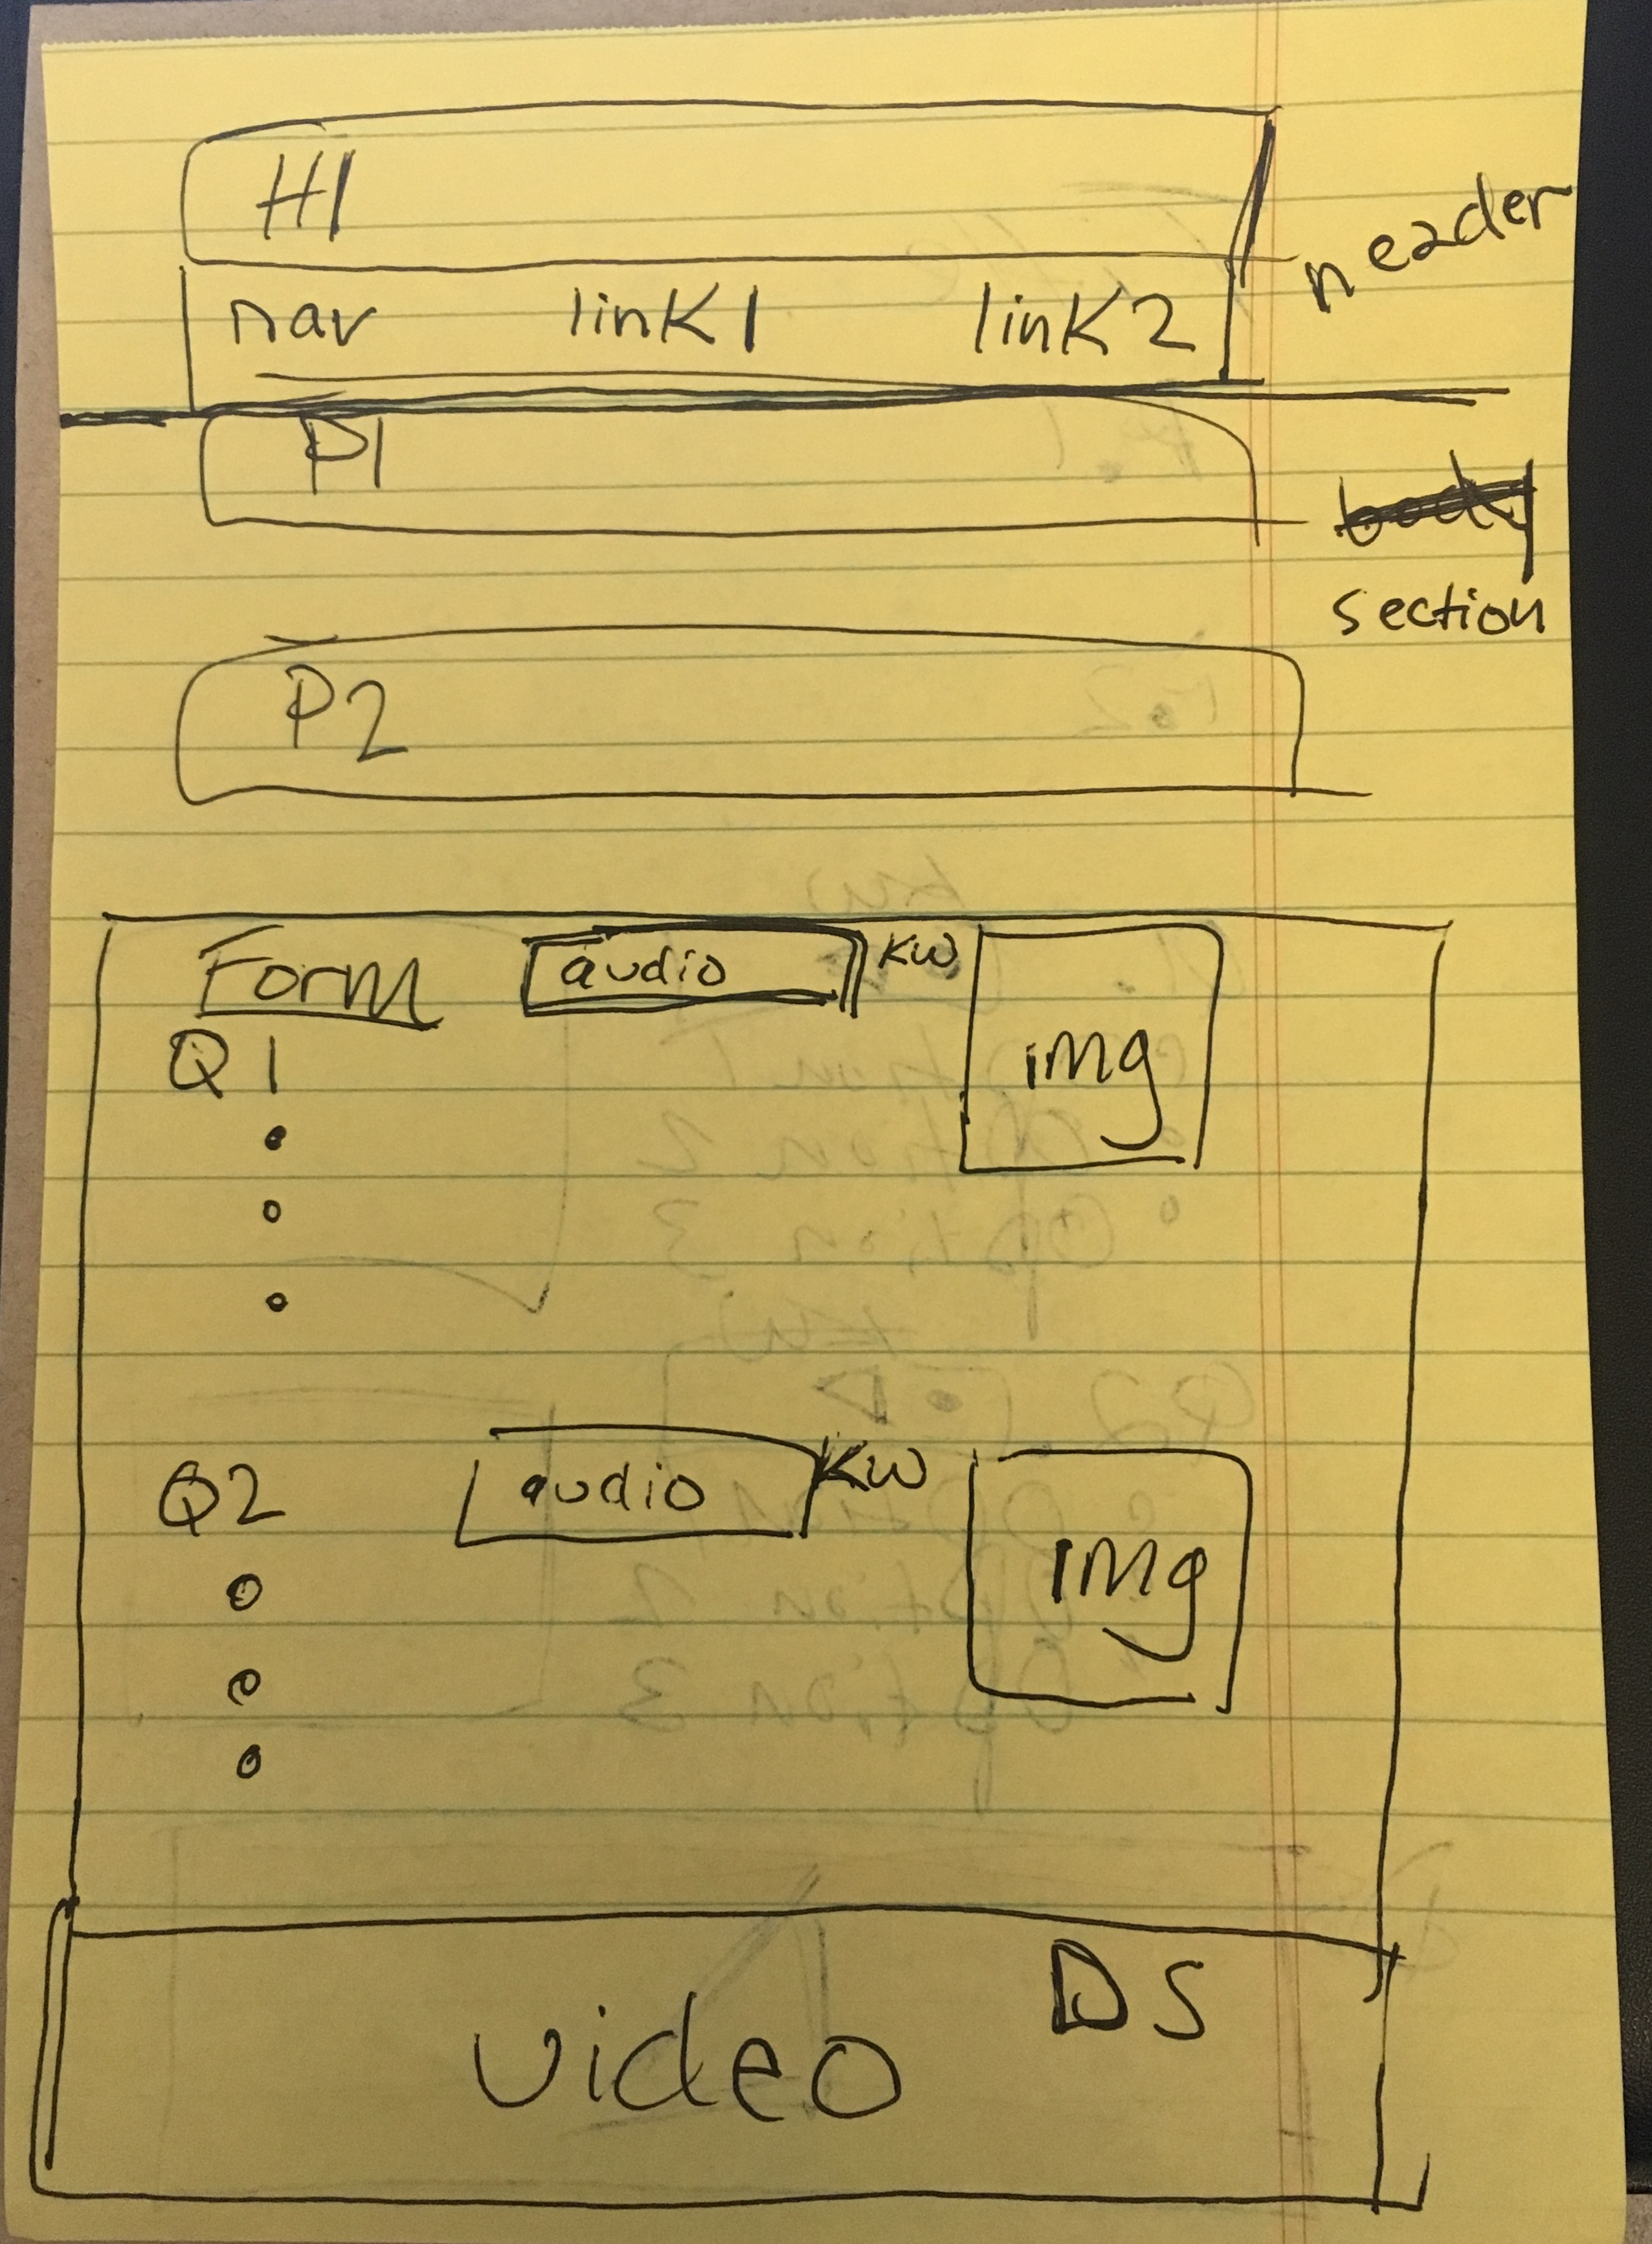 H1
header
nav link1 link2
P1
body
section
P2
Form audio KW
img
Q1
Q2 audio KW
img
DS
video